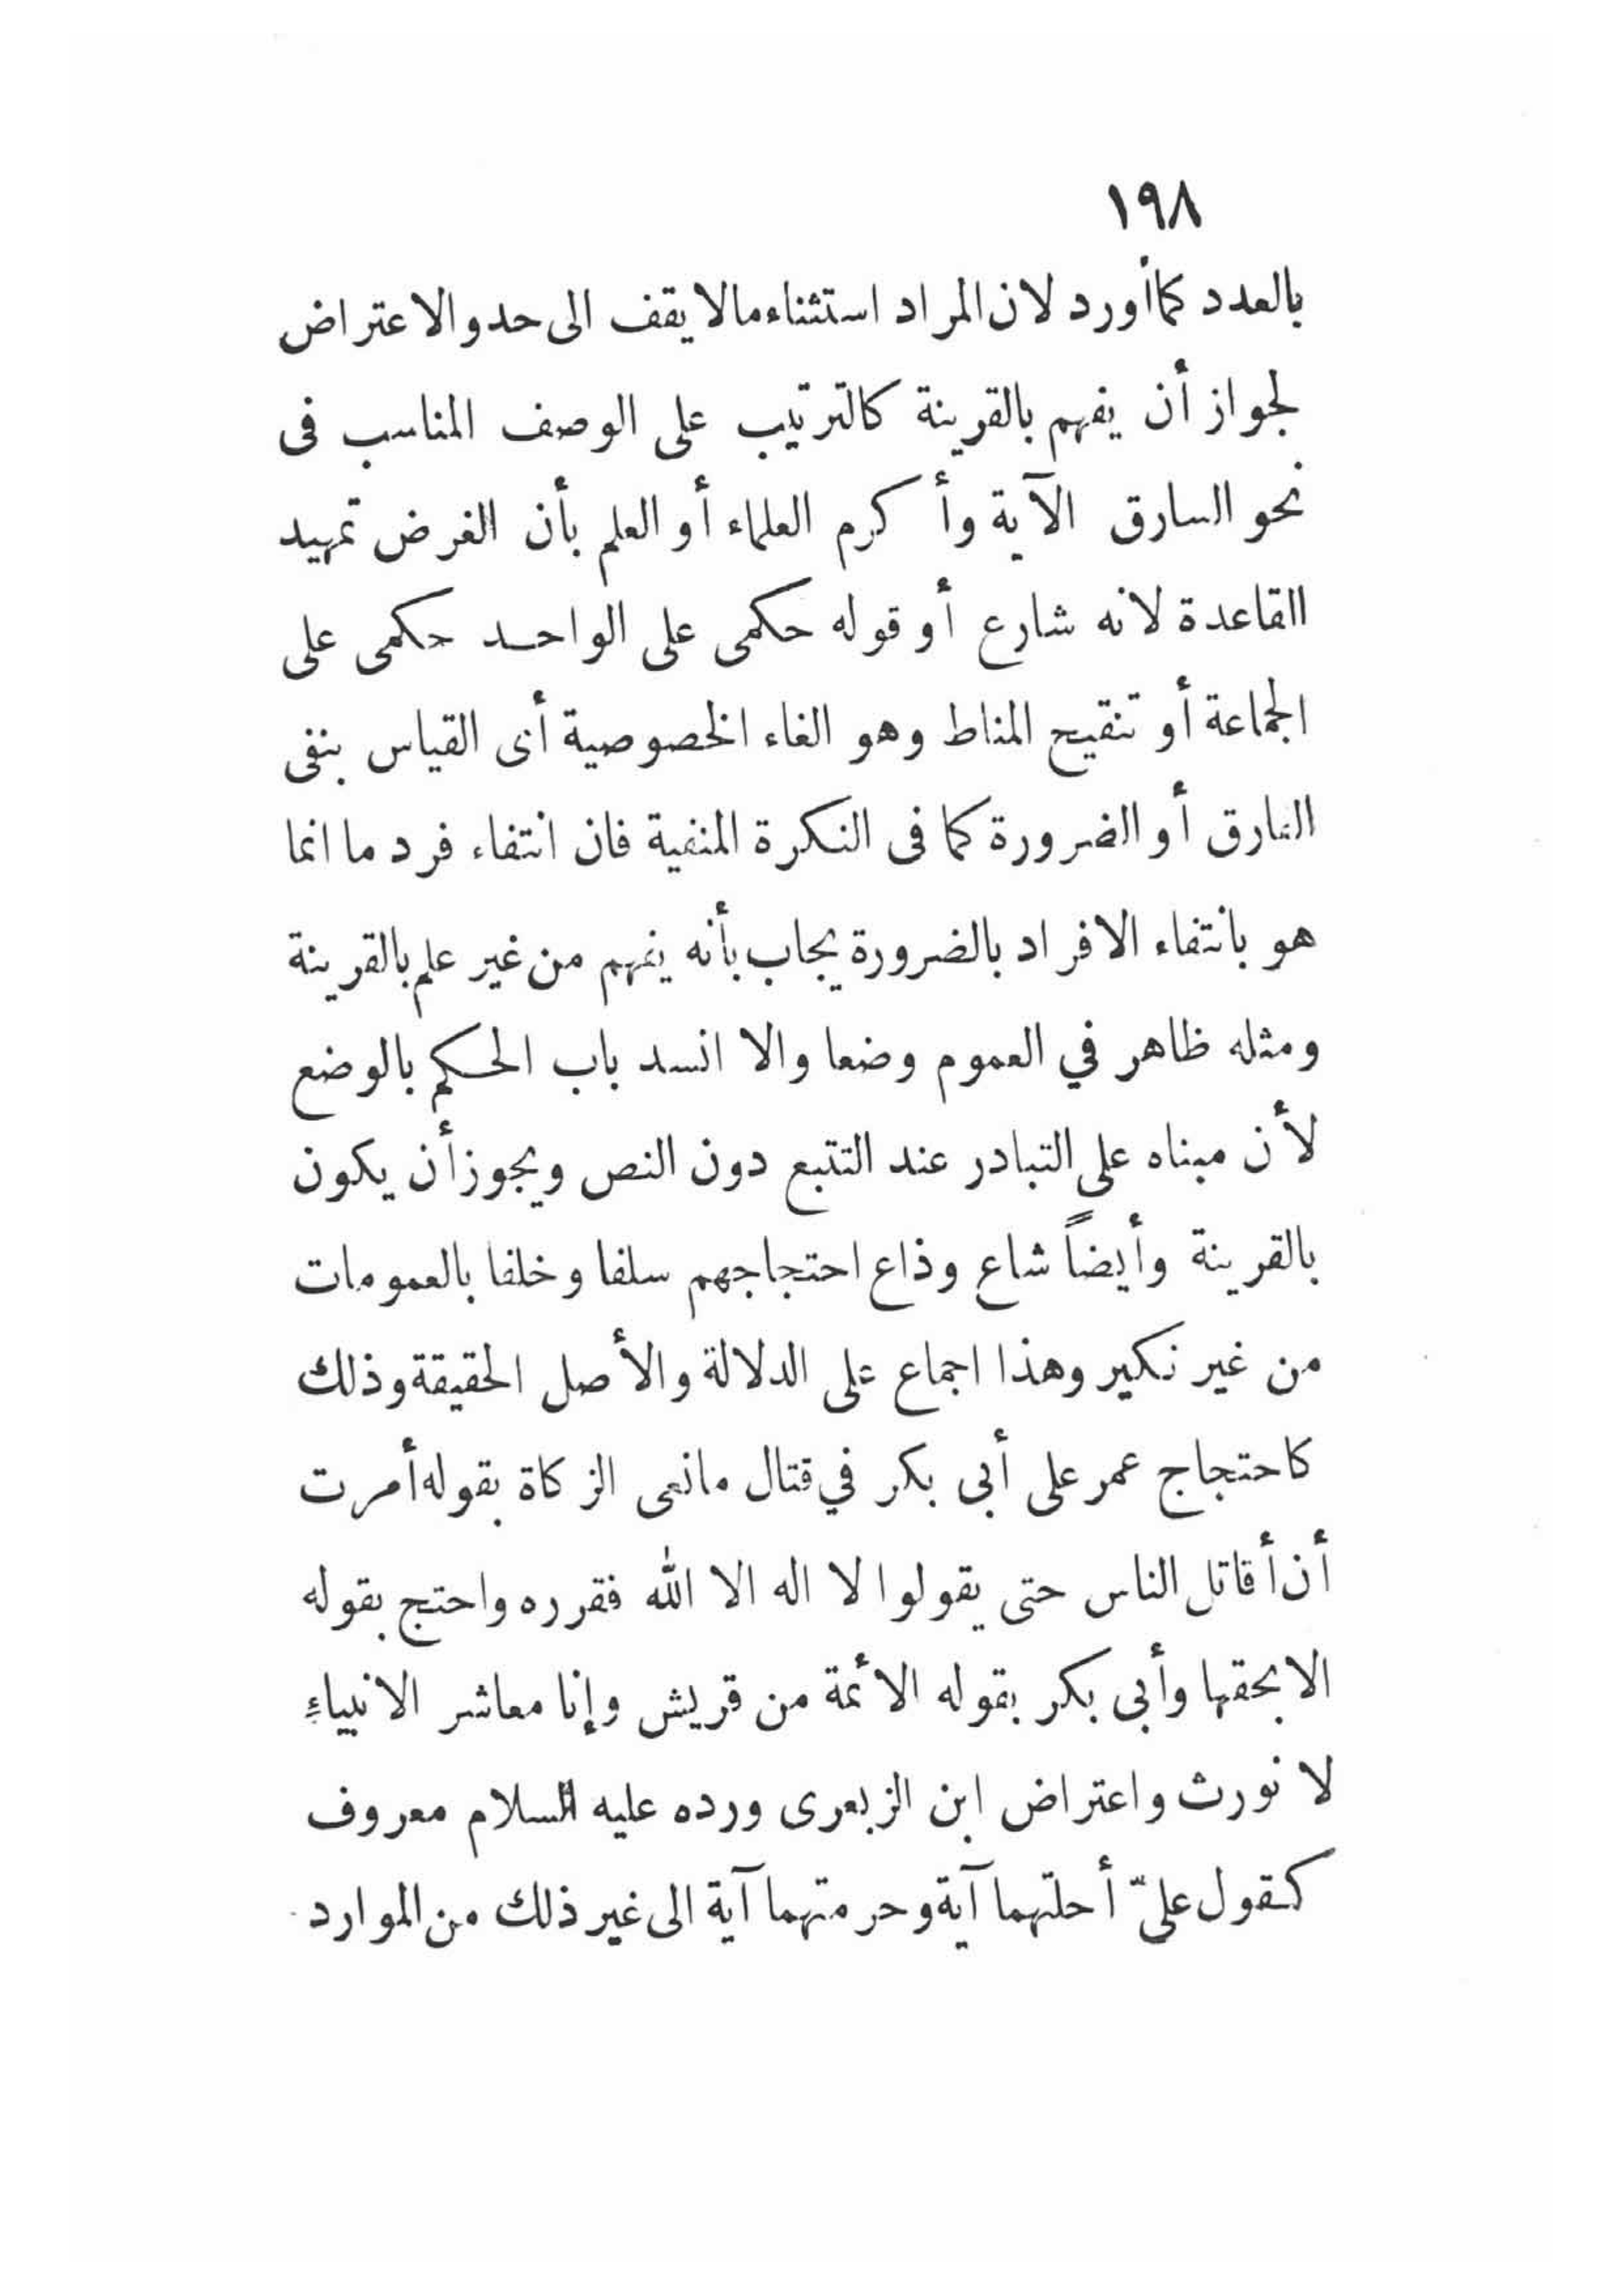 ١٩٨
بالعدد كما أورد لان المراد استثناء مالا يقف الى حد والاعتراض
لجواز أن يفهم بالقرينة كالترتيب على الوصف المناسب فى
نحو السارق الآية وأكرم العلماء أو العلم بأن الغرض تمهيد
القاعدة لانه شارع أو قوله حكمى على الواحد حكمى على
الجماعة أو تنقيح المناط وهو الغاء الخصوصية أى القياس بنفى
الفارق أو الضرورة كما فى النكرة المنفية فان انتفاء فرد ما انما
هو بانتفاء الافراد بالضرورة يجاب بأنه يفهم من غير علم بالقرينة
ومثله ظاهر في العموم وضعا والا انسد باب الحكم بالوضع
لأن مبناه على التبادر عند التتبع دون النص ويجوز أن يكون
بالقرينة وأيضاً شاع وذاع احتجاجهم سلفا وخلفا بالعمومات
من غير نكير وهذا اجماع على الدلالة والأصل الحقيقة وذلك
كاحتجاج عمر على أبى بكر في قتال مانعى الزكاة بقوله أمرت
أن أقاتل الناس حتى يقولوا لا اله الا الله فقرره واحتج بقوله
الا بحقها وأبى بكر بقوله الأئمة من قريش وإنا معاشر الانبياء
لا نورث واعتراض ابن الزبعرى ورده عليه السلام معروف
كقول علىّ أحلتهما آية وحرمتهما آية الى غير ذلك من الموارد